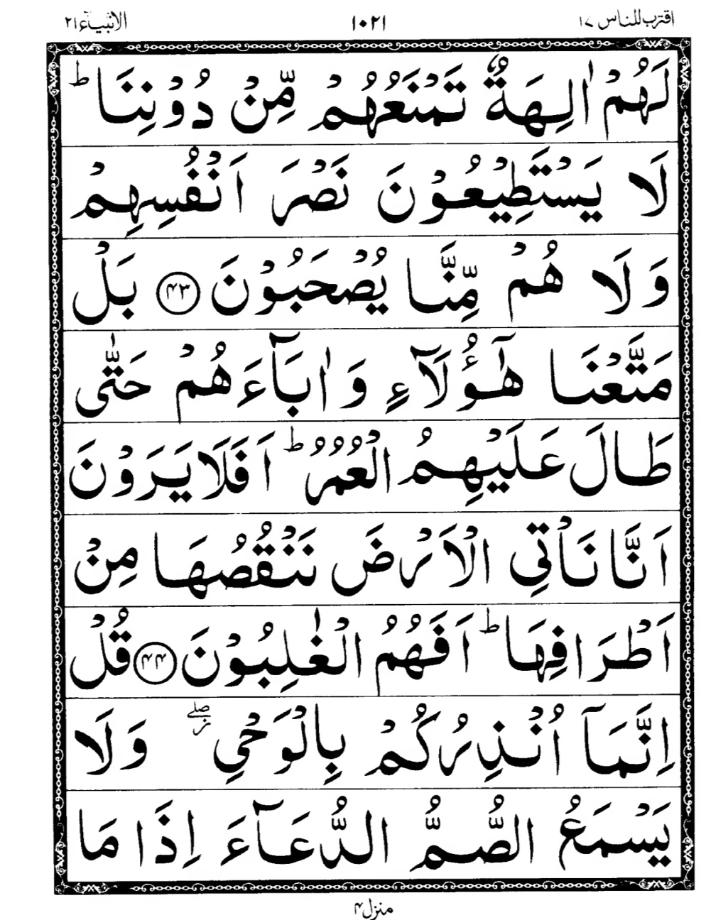 اقترب للناس ١٧ ١٠٢١ الانبیآء ٢١
لَهُمْ اٰلِهَةٌ تَمْنَعُهُمْ مِّنْ دُوْنِنَا ؕ
لَا يَسْتَطِيْعُوْنَ نَصْرَ اَنْفُسِهِمْ
وَلَا هُمْ مِّنَّا يُصْحَبُوْنَ ﴿۴۳﴾ بَلْ
مَتَّعْنَا هٰٓؤُلَآءِ وَاٰبَآءَهُمْ حَتّٰى
طَالَ عَلَيْهِمُ الْعُمُرُ ؕ اَفَلَا يَرَوْنَ
اَنَّا نَاْتِى الْاَرْضَ نَنْقُصُهَا مِنْ
اَطْرَافِهَا ؕ اَفَهُمُ الْغٰلِبُوْنَ ﴿۴۴﴾ قُلْ
اِنَّمَاۤ اُنْذِرُكُمْ بِالْوَحْىِ ۖز وَلَا
يَسْمَعُ الصُّمُّ الدُّعَآءَ اِذَا مَا
منزل ۴